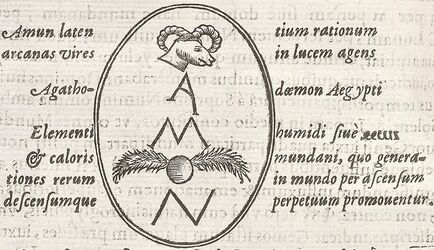 Amun laten tium rationum
arcanas vires in lucem agens
Agatho- dæmon Aegypti
A
M
Elementi humidi siue
& caloris mundani, quo genera-
tiones rerum in mundo per ascensum
descensumque perpetuum promouentur.
N